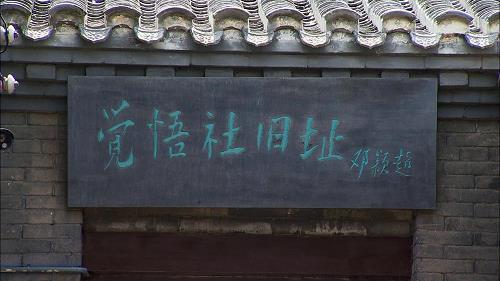 觉悟社旧址 邓颖超